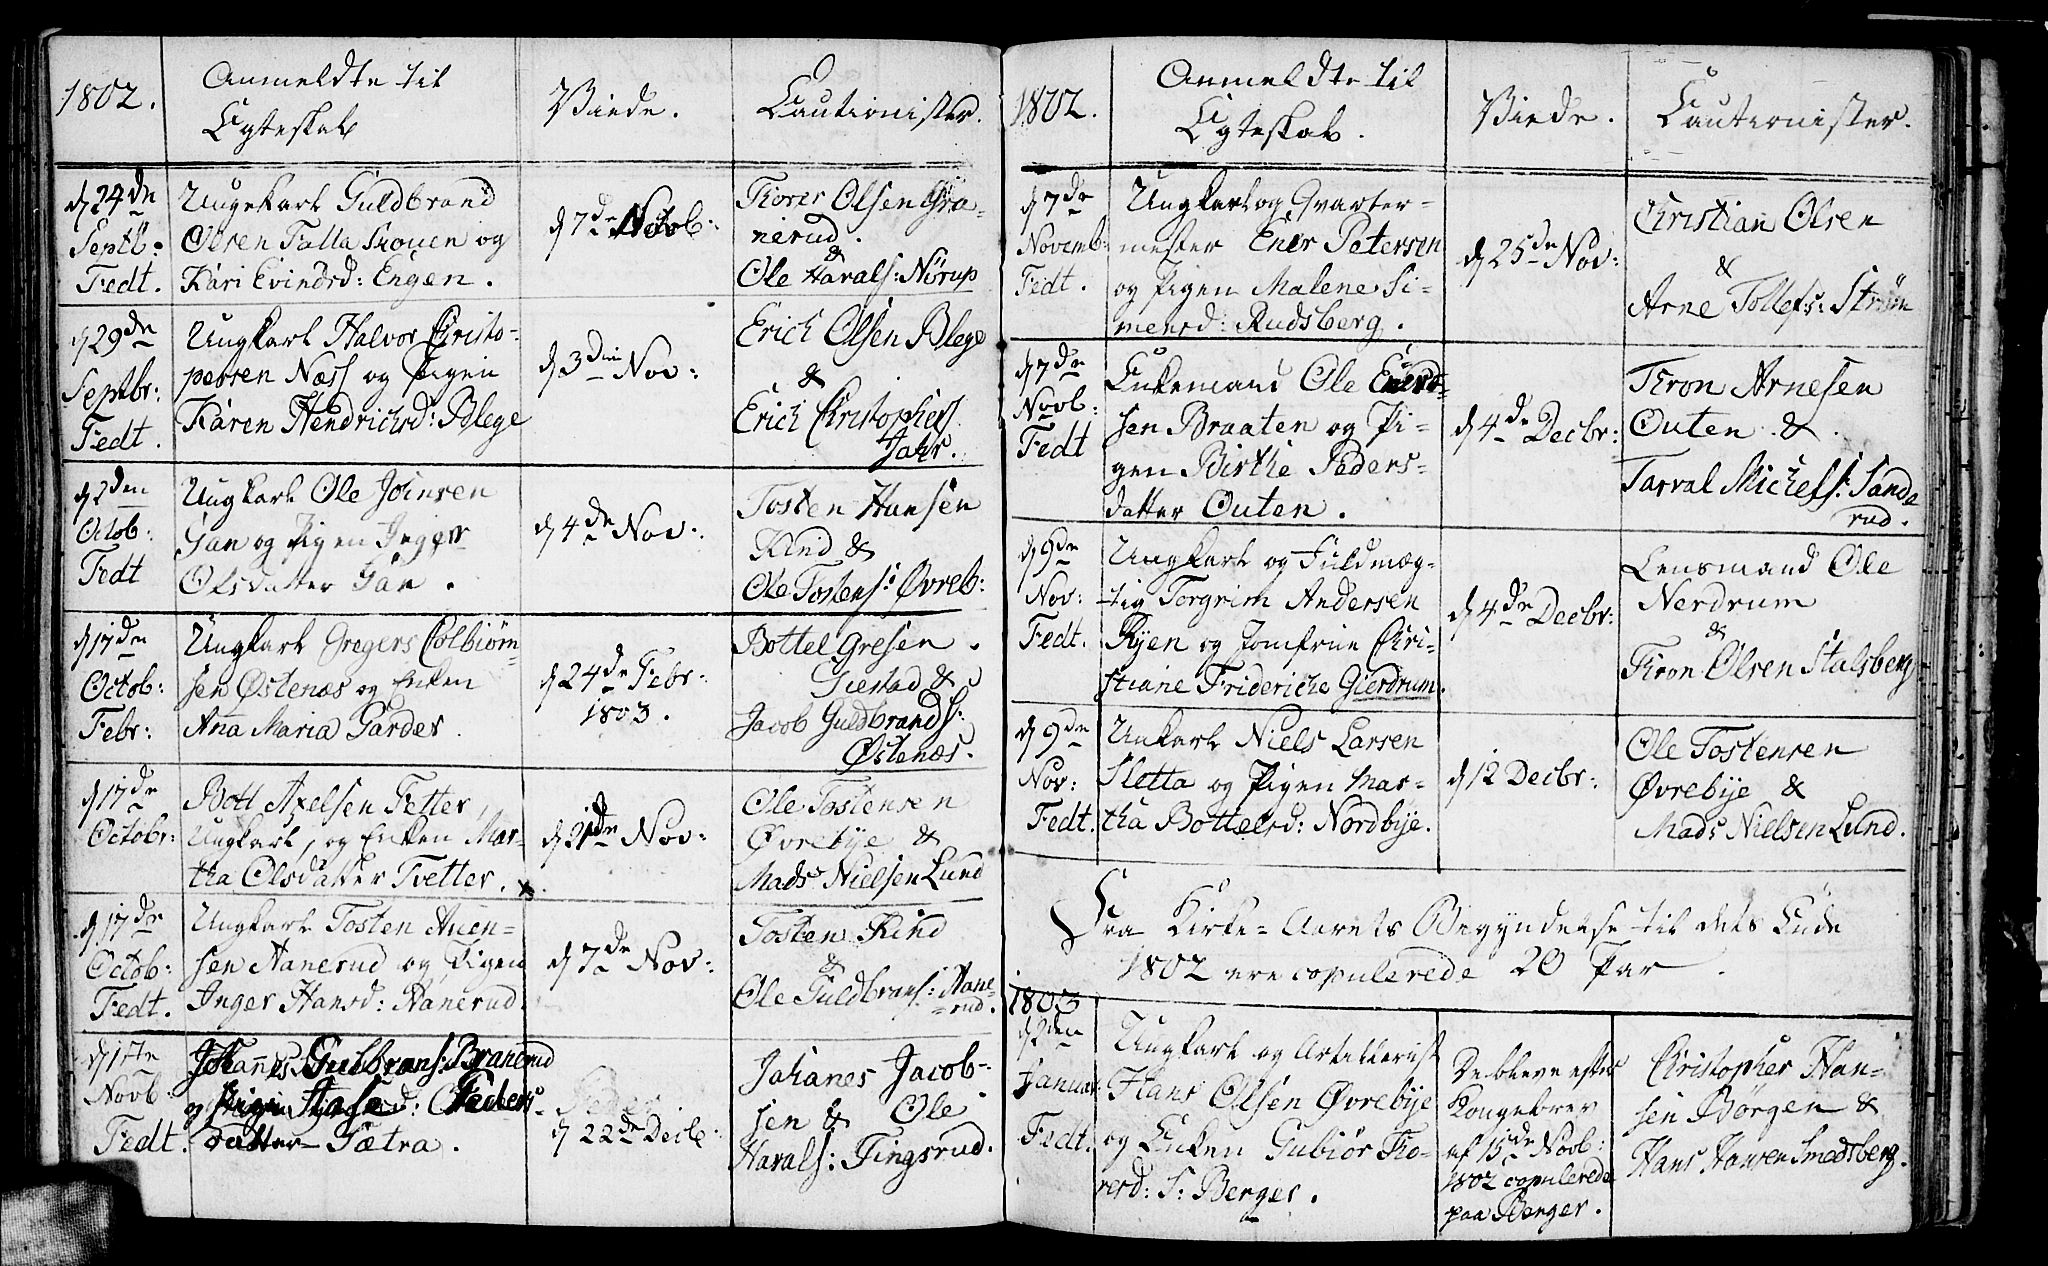 1802.
Anmeldte til
Egteskab
Viede.
Cautionister.
d 24de
Septb:
Fedt.
Ungekarl Guldbrand
Olsen Falla Skouen og
Kari Evindsd: Engen.
d 7de Octob:
Thorer Olsen Gra-
nerud.
&
Ole Harals: Nörup
d 29de
Septbr:
Fedt.
Ungkarl Halvor Christo-
persen Næss og Pigen
Karen Hendrichsd: Blege
d 3die Nov:
Erich Olsen Blege
&
Erich Christophers
Jahr.
d 2den
Octob:
Fedt
Ungkarl Ole Joensen
Gan og Pigen Inger
Olsdatter Gan.
d 4de Nov:
Tosten Hansen
Kind &
Ole Tostens: Øvreb:
d 17de
Octob:
Febr:
Ungkarl Gregers Colbiörn-
sen Østenæs og Enken
Ana Maria Garder
d 24de Febr:
1803.
Bottel Gresen
&
Jacob Guldbrands:
Østenæs.
d 17de
Octobr:
Bott Axelsen Tetter,
Ungkarl, og Enken Mar-
tha Olsdatter Tvetter.
d 21de Nov:
Ole Tostensen
Øvrebye &
Mads Nielsen Lund
d 17de
Octob:
Fedt.
Ungkarl Tosten Auen-
sen Hanerud og Pigen
Inger Hansd: Hanerud.
d 7de Nov:
Tosten Kind
&
Ole Guldbrans: Hane-
=rud.
d 1ste
Novb:
Fedt.
Johannes Gulbrans: Branerud
og Pigen Aase Peders-
datter Sætra.
d 22de Decb:
Johanes Jacob-
sen & Ole
Harals: Tingsrud.
1802.
Anmeldte til
Egteskab.
Viede.
Cautionister.
d 7de
Novemb:
Fedt.
Ungkarl og Qvarter-
mester Ener Petersen
og Pigen Malene Si-
mensd: Rudsberg.
d 25de Nov:
Christian Olsen
&
Arne Tollefs: Ström
d 7de
Novb:
Fedt
Enkemand Ole Eners-
sen Braaten og Pi-
gen Birthe Peders-
datter Outen.
d 4de Decbr:
Thron Arnesen
Outen &
Tarval Michels: Sande
rud.
d 9de
Nov:
Fedt.
Ungkarl og Fuldmæg-
tig Torgrim Andersen
Ryen og Jomfrue Chri-
stiane Frideriche Gierdrum.
d 4de Decbr:
Lensmand Ole
Nerdrum
&
Thron Olsen Stalsberg
d 9de
Nov:
Fedt.
Unkarl Niels Larsen
Sletta og Pigen Mar-
tha Bottelsd: Nordbye.
d 12 Decbr:
Ole Tostensen
Øvrebye &
Mads Nielsen Lund.
Fra Kirke-Aarets Begyndelse til dets Ende
1802 ere copulerede 20 Par.
1803
d 2den
Januar
Fedt.
Ungkarl og Artillerist
Hans Olsen Øvrebye
og Enken Gubiör Tho-
rersd: S: Berger.
De bleve efter
Kongebrev
af 15de Novb:
1802 copulerede
paa Berger.
Christopher Han-
sen Börgen &
Hans Hansen Smedsberg.